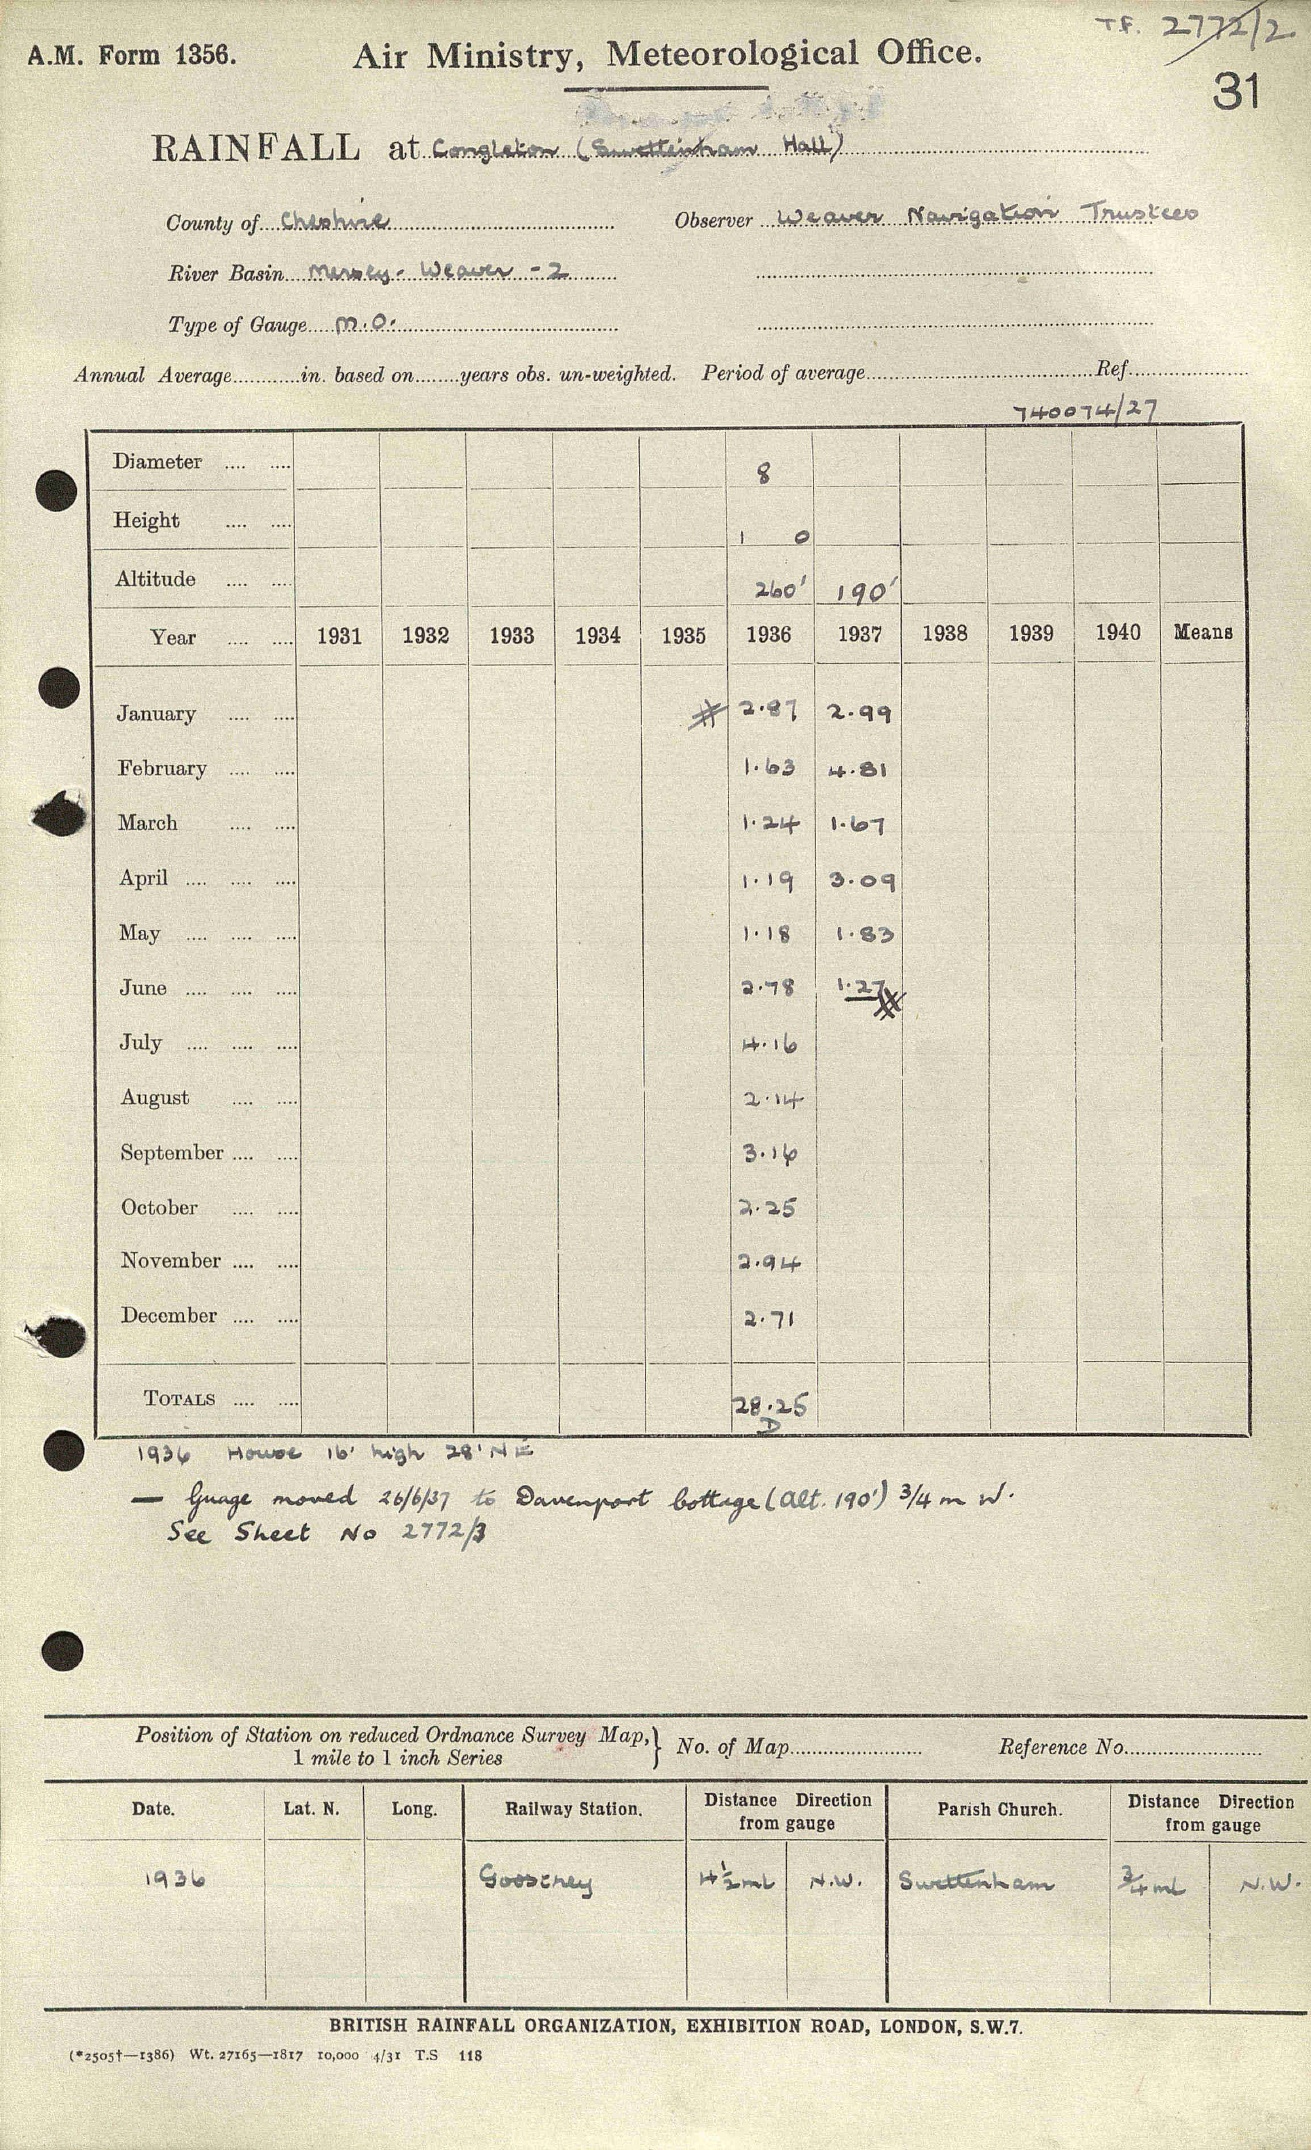 T.F. 2772/2
A.M. Form 1356. Air Ministry, Meteorological Office.
31
RAINFALL at Congleton (Swettenham Hall)
County of Cheshire Observer Weaver Navigation Trustees
River Basin Mersey - Weaver - 2
Type of Gauge M.O.
Annual Average............in. based on........years obs. un-weighted. Period of average........................................Ref.....................
740074/27
Diameter .... .... 8
Height .... .... 1 0
Altitude .... .... 260' 190'
Year .... .... 1931 1932 1933 1934 1935 1936 1937 1938 1939 1940 Means
January .... .... # 2.87 2.99
February .... .... 1.63 4.81
March .... .... 1.24 1.67
April .... .... .... 1.19 3.09
May .... .... .... 1.18 1.83
June .... .... .... 2.78 1.27
July .... .... .... 4.16
August .... .... 2.14
September .... .... 3.16
October .... .... 2.25
November .... .... 2.94
December .... .... 2.71
TOTALS .... .... 28.25
D
1936 House 16' high 28' NE
— Guage moved 26/6/37 to Davenport Cottage (Alt. 190') 3/4 m W.
See Sheet No 2772/3
Position of Station on reduced Ordnance Survey Map,} No. of Map........................ Reference No.........................
1 mile to 1 inch Series
Date. Lat. N. Long. Railway Station. Distance Direction from gauge Parish Church. Distance Direction from gauge
1936 Goostrey 4½ ml N.W. Swettenham ¾ ml N.W.
BRITISH RAINFALL ORGANIZATION, EXHIBITION ROAD, LONDON, S.W.7.
(*2505†—1386) Wt. 27165—1817 10,000 4/31 T.S 118